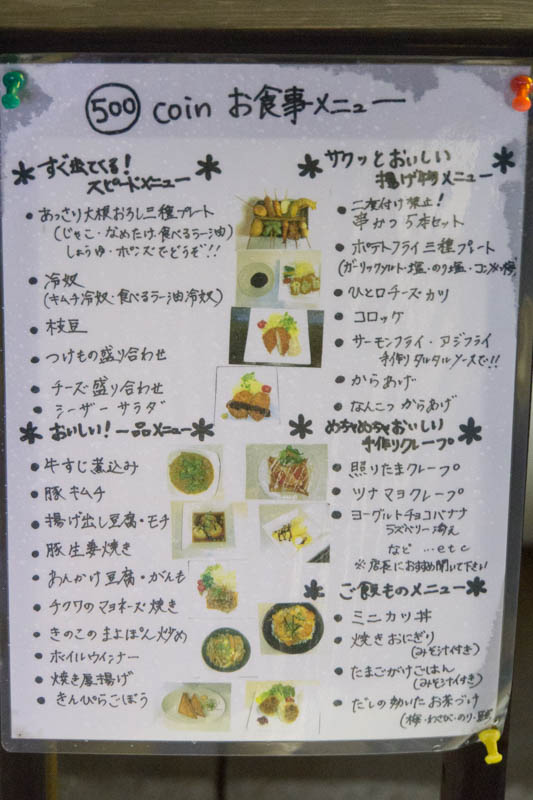 500 coin お食事メニュー
すぐ出てくる!
スピードメニュー
・あっさり大根おろし三種プレート
(じゃこ・なめたけ・食べるラー油)
しょうゆ・ポンズでどうぞ!!
・冷奴
(キムチ冷奴・食べるラー油冷奴)
・枝豆
・つけもの盛り合わせ
・チーズ盛り合わせ
・シーザーサラダ
おいしい!一品メニュー
・牛すじ煮込み
・豚キムチ
・揚げ出し豆腐・モチ
・豚生姜焼き
・あんかけ豆腐・がんも
・チクワのマヨネーズ焼き
・きのこのまよぽん炒め
・ホイルウインナー
・焼き厚揚げ
・きんぴらごぼう
サクッとおいしい
揚げ物メニュー
・二度付け禁止!
串かつ5本セット
・ポテトフライ三種プレート
(ガーリックソルト・塩・のり塩・コンソメ)
・ひと口チーズカツ
・コロッケ
・サーモンフライ・アジフライ
手作りタルタルソースで!!
・からあげ
・なんこつからあげ
めちゃめちゃおいしい
手作りクレープ
・照りたまクレープ
・ツナマヨクレープ
・ヨーグルトチョコバナナ
ラズベリー添え
など …etc
※店長におすすめ聞いて下さい
ご飯ものメニュー
・ミニカツ丼
・焼きおにぎり
(みそ汁付き)
・たまごがけごはん
(みそ汁付き)
・だしの効いたお茶づけ
(梅・わさび・のり・